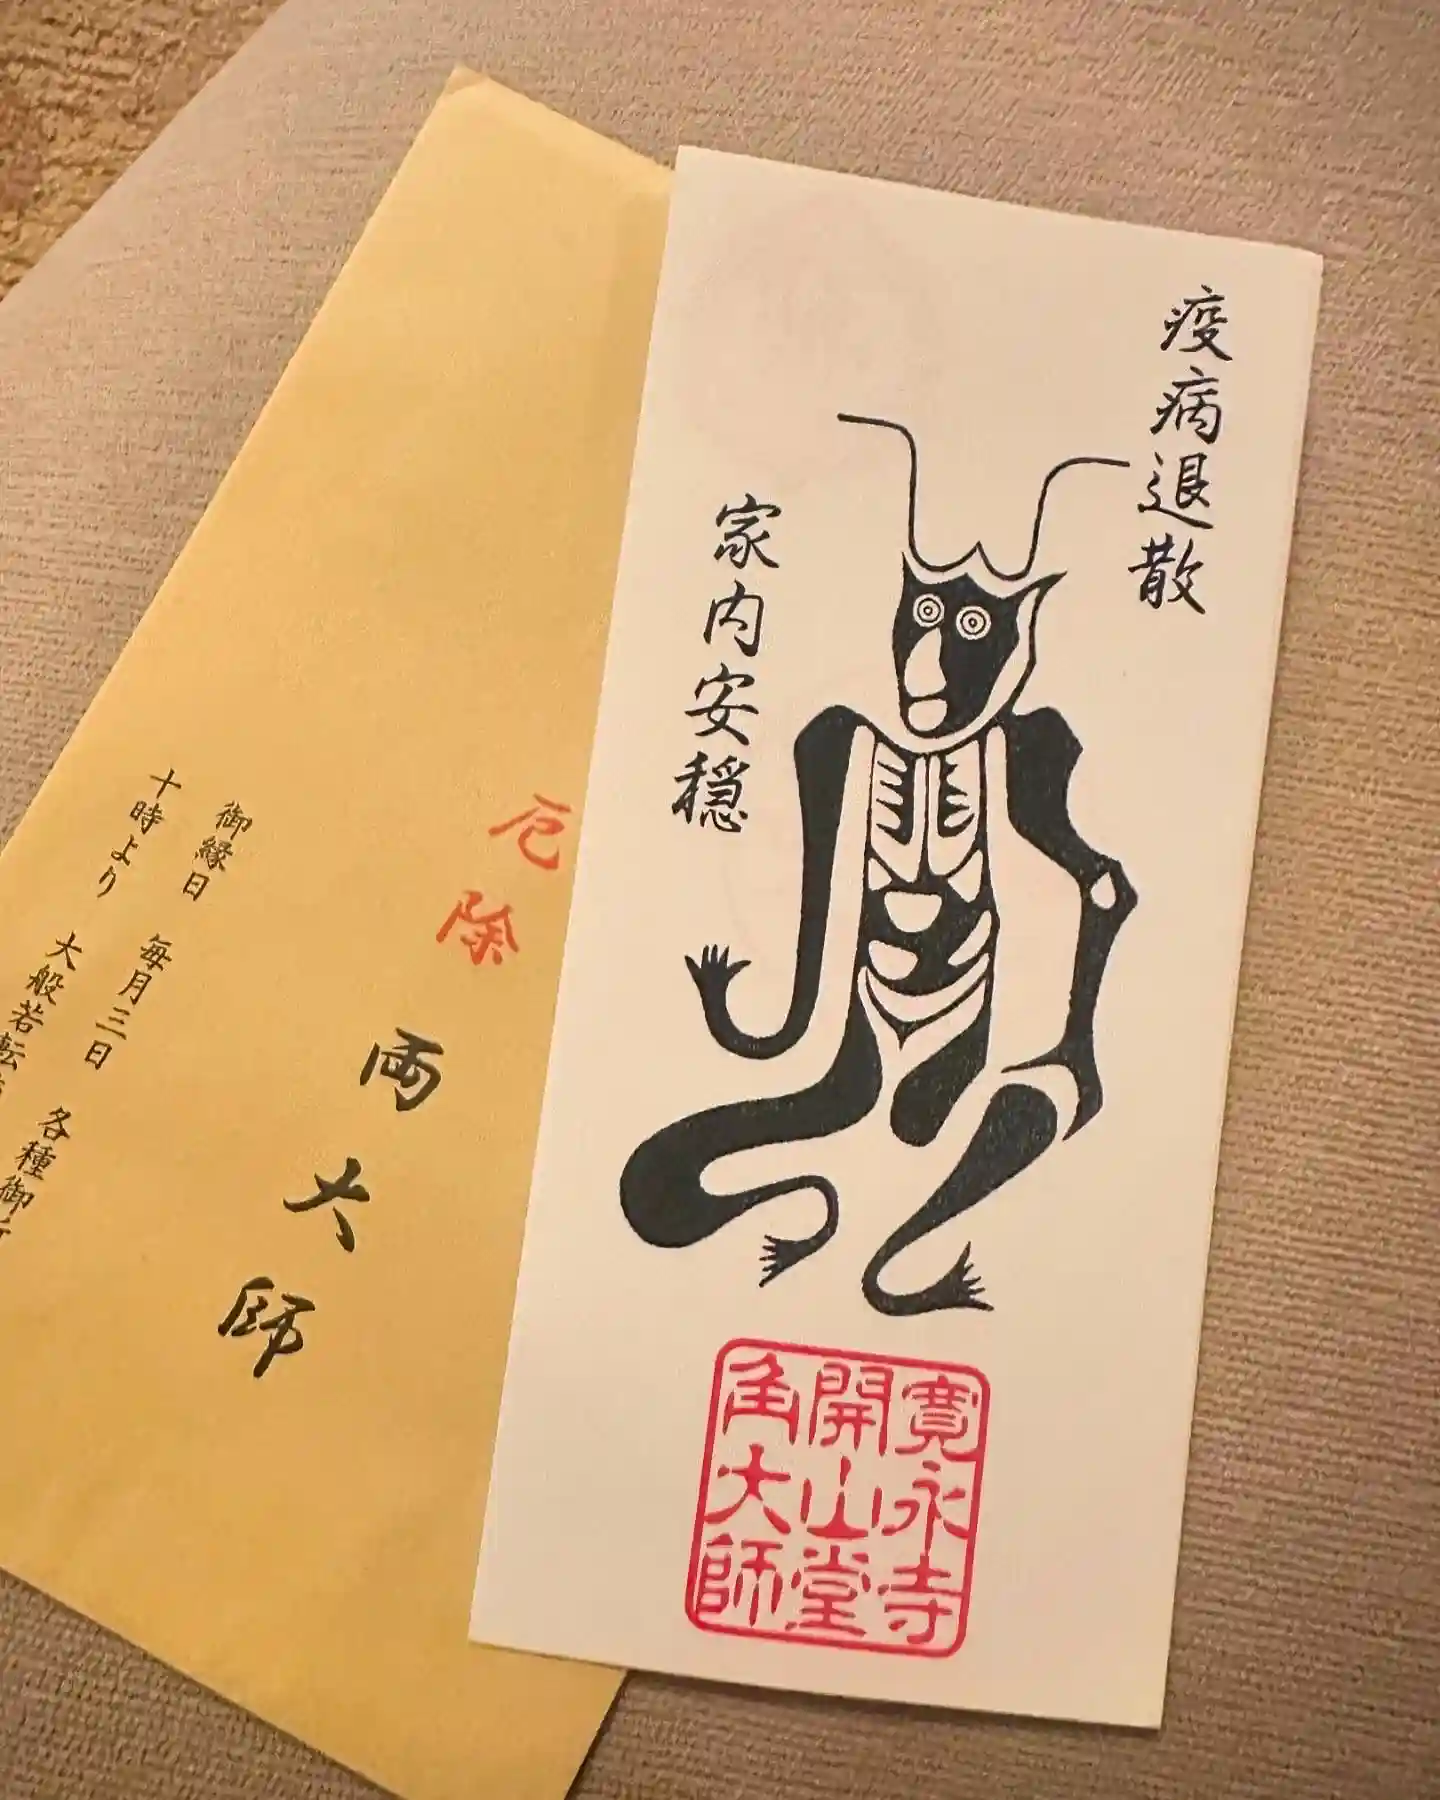 疫病退散
家内安穏
寛永寺
開山堂
角大師
厄除
両大師
御縁日 毎月三日 各種御
十時より 大般若転